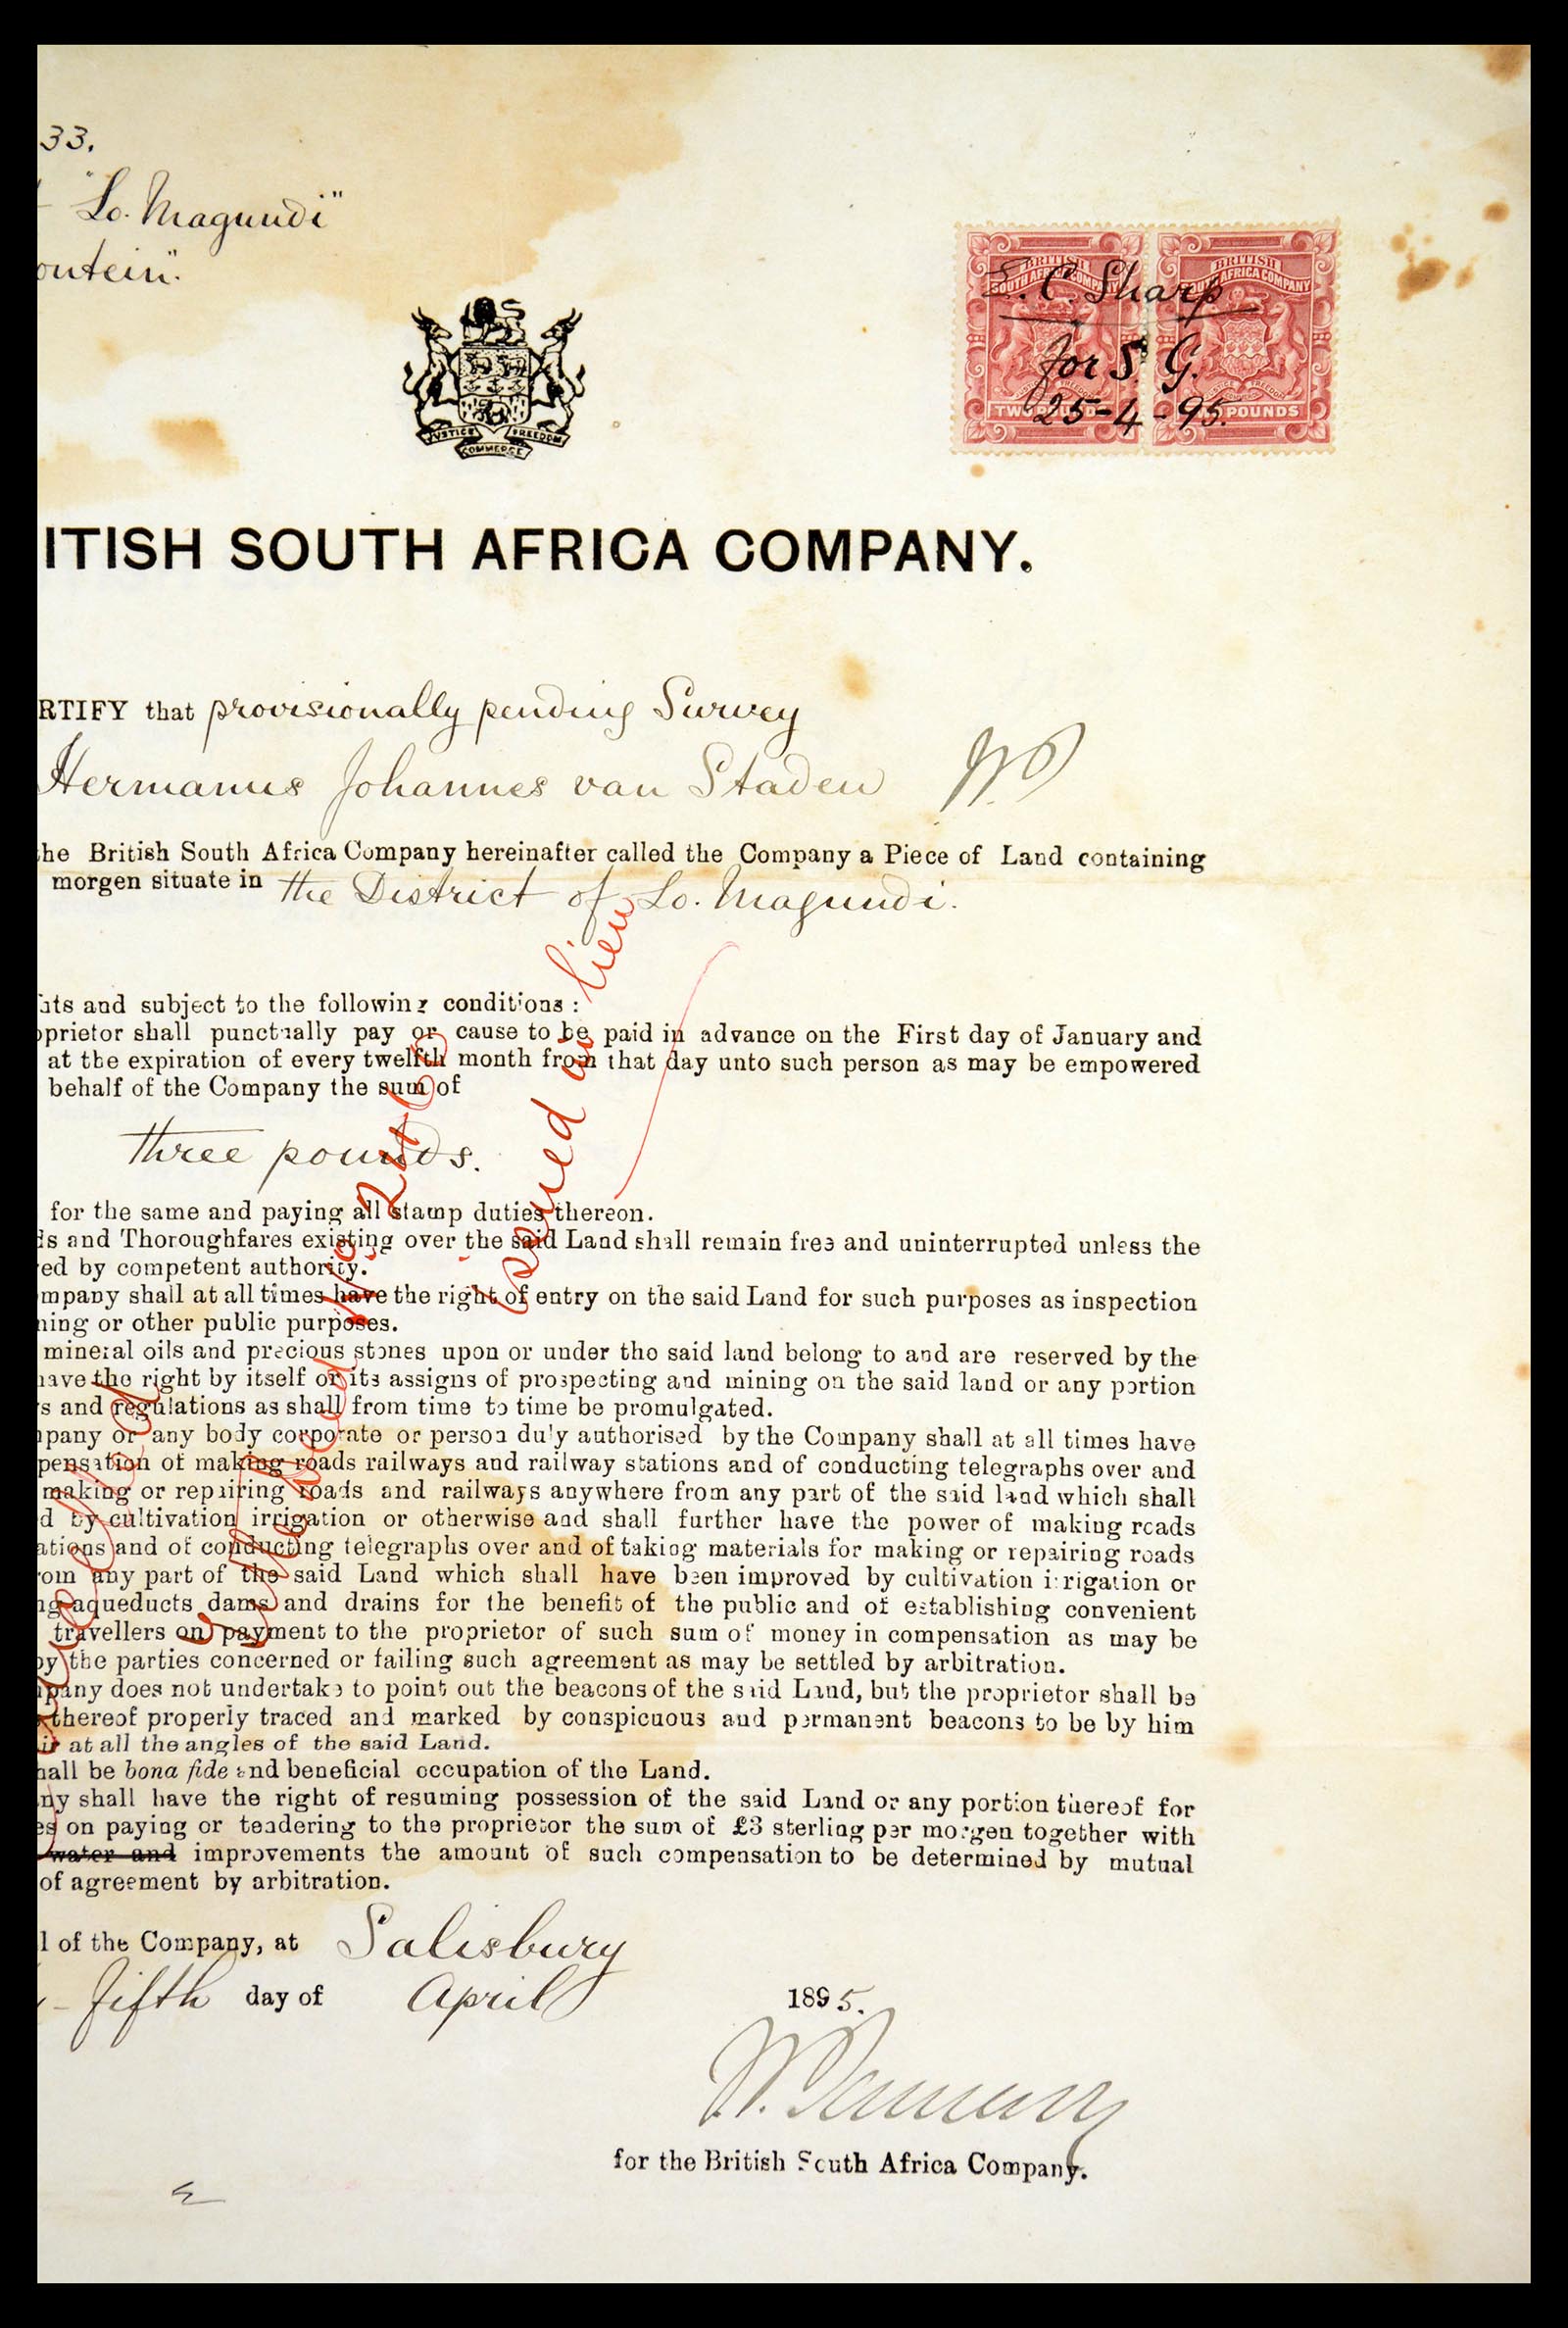 33.
"Lo. Magundi"
ontein".
JUSTICE FREEDOM
COMMERCE
BRITISH SOUTH AFRICA COMPANY
BRITISH SOUTH AFRICA COMPANY
E. C. Sharp
for S. G.
25-4-95.
TWO POUNDS
POUNDS
ITISH SOUTH AFRICA COMPANY.
RTIFY that provisionally pending Survey
Hermanus Johannes van Staden
he British South Africa Company hereinafter called the Company a Piece of Land containing
morgen situate in the District of Lo. Magundi.
its and subject to the following conditions:
oprietor shall punctually pay or cause to be paid in advance on the First day of January and
at the expiration of every twelfth month from that day unto such person as may be empowered
behalf of the Company the sum of
three pounds.
for the same and paying all stamp duties thereon.
ds and Thoroughfares existing over the said Land shall remain free and uninterrupted unless the
ed by competent authority.
mpany shall at all times have the right of entry on the said Land for such purposes as inspection
ning or other public purposes.
mineral oils and precious stones upon or under the said land belong to and are reserved by the
have the right by itself or its assigns of prospecting and mining on the said land or any portion
s and regulations as shall from time to time be promulgated.
pany or any body corporate or person duly authorised by the Company shall at all times have
pensation of making roads railways and railway stations and of conducting telegraphs over and
making or repairing roads and railways anywhere from any part of the said land which shall
d by cultivation irrigation or otherwise and shall further have the power of making roads
ations and of conducting telegraphs over and of taking materials for making or repairing roads
om any part of the said Land which shall have been improved by cultivation irrigation or
ng aqueducts dams and drains for the benefit of the public and of establishing convenient
travellers on payment to the proprietor of such sum of money in compensation as may be
by the parties concerned or failing such agreement as may be settled by arbitration.
pany does not undertake to point out the beacons of the said Land, but the proprietor shall be
thereof properly traced and marked by conspicuous and permanent beacons to be by him
ir at all the angles of the said Land.
hall be bona fide and beneficial occupation of the Land.
ny shall have the right of resuming possession of the said Land or any portion thereof for
es on paying or tendering to the proprietor the sum of £3 sterling per morgen together with
water and improvements the amount of such compensation to be determined by mutual
of agreement by arbitration.
l of the Company, at Salisbury
- fifth day of April 1895.
for the British South Africa Company.
issued in lieu